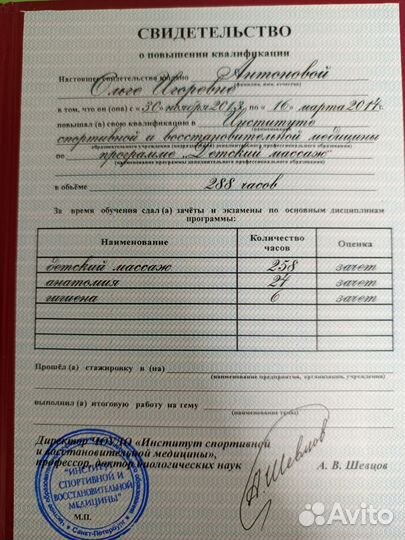 СВИДЕТЕЛЬСТВО
о повышении квалификации
Настоящее свидетельство выдано Антоновой
Ольге Игоревне
(фамилия, имя, отчество)
в том, что он (она) с «30» ноября по «16» марта 2014г.
повышал (а) свою квалификацию в Институте
(наименование)
спортивной и восстановительной медицины
образовательного учреждения (подразделения) дополнительного профессионального образования)
по программе „Детский массаж"
(наименование программы дополнительного профессионального образования)
в объёме 288 часов
За время обучения сдал (а) зачёты и экзамены по основным дисциплинам
программы:
Наименование Количество часов Оценка
детский массаж 258 зачет
анатомия 24 зачет
гигиена 6 зачет
Прошёл (а) стажировку в (на)
(наименование предприятия, организации, учреждения)
выполнил (а) итоговую работу на тему
(наименование темы)
Директор ЧОУДО «Институт спортивной
и восстановительной медицины»,
профессор, доктор биологических наук А. В. Шевцов
А.Шевцов
"ИНСТИТУТ
СПОРТИВНОЙ И
ВОССТАНОВИТЕЛЬНОЙ
МЕДИЦИНЫ"
Санкт-Петербург
М.П.
Avito